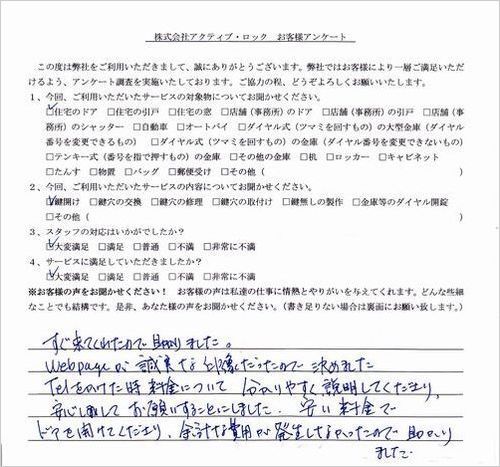 株式会社アクティブ・ロック　お客様アンケート
この度は弊社をご利用いただきまして、誠にありがとうございます。弊社ではお客様により一層ご満足いただ
けるよう、アンケート調査を実施いたしております。ご協力の程、どうぞよろしくお願いいたします。
1、今回、ご利用いただいたサービスの対象物についてお聞かせください。
☑住宅のドア　□住宅の引戸　□住宅の窓　□店舗（事務所）のドア　□店舗（事務所）の引戸　□店舗（事
務所）のシャッター　□自動車　□オートバイ　□ダイヤル式（ツマミを回すもの）の大型金庫（ダイヤル
番号を変更できるもの）　□ダイヤル式（ツマミを回すもの）の金庫（ダイヤル番号を変更できないもの）
□テンキー式（番号を指で押すもの）の金庫　□その他の金庫　□机　□ロッカー　□キャビネット
□たんす　□物置　□バッグ　□郵便受け　□その他（　　　）
2、今回、ご利用いただいたサービスの内容についてお聞かせください。
☑鍵開け　□鍵穴の交換　□鍵穴の修理　□鍵穴の取付け　□鍵無しの製作　□金庫等のダイヤル開錠
□その他（　　　）
3、スタッフの対応はいかがでしたか？
☑大変満足　□満足　□普通　□不満　□非常に不満
4、サービスに満足していただきましたか？
☑大変満足　□満足　□普通　□不満　□非常に不満
※お客様の声をお聞かせください！　お客様の声は私達の仕事に情熱とやりがいを与えてくれます。どんな些細
なことでも結構です。是非、あなた様の声をお聞かせください。（書き足りない場合は裏面にお願い致します。）
すぐ来てくれたので助かりました。
Webpageが誠実な印象だったので決めました
Telをかけた時料金について分かりやすく説明してくださり、
安心してお願いすることにしました。安い料金で
ドアを開けてくださり、余計な費用が発生しなかったので助かり
ました